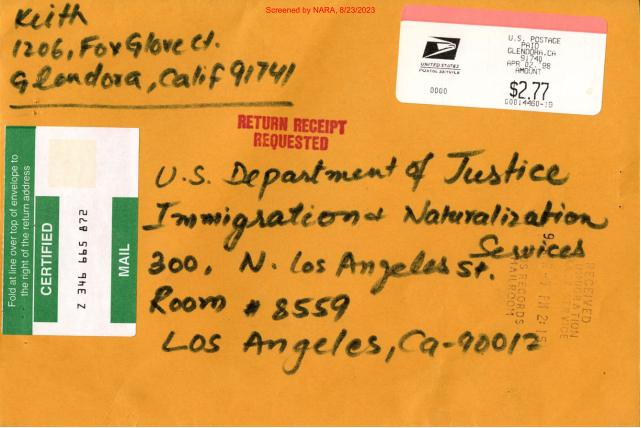 Screened by NARA, 8/23/2023
Keith
1206, Fox Glove ct.
Glendora, Calif 91741
UNITED STATES
POSTAL SERVICE
0000
U.S. POSTAGE
PAID
GLENDORA, CA
91740
APR 02, 98
AMOUNT
$2.77
00014460-10
RETURN RECEIPT
REQUESTED
Fold at line over top of envelope to
the right of the return address
CERTIFIED
Z 346 665 872
MAIL
U.S. Department of Justice
Immigration & Naturalization
Services
300, N. Los Angeles St.
Room # 8559
Los Angeles, Ca-90012
RECEIVED
IMMIGRATION
SERVICE
RECORDS
MAILROOM